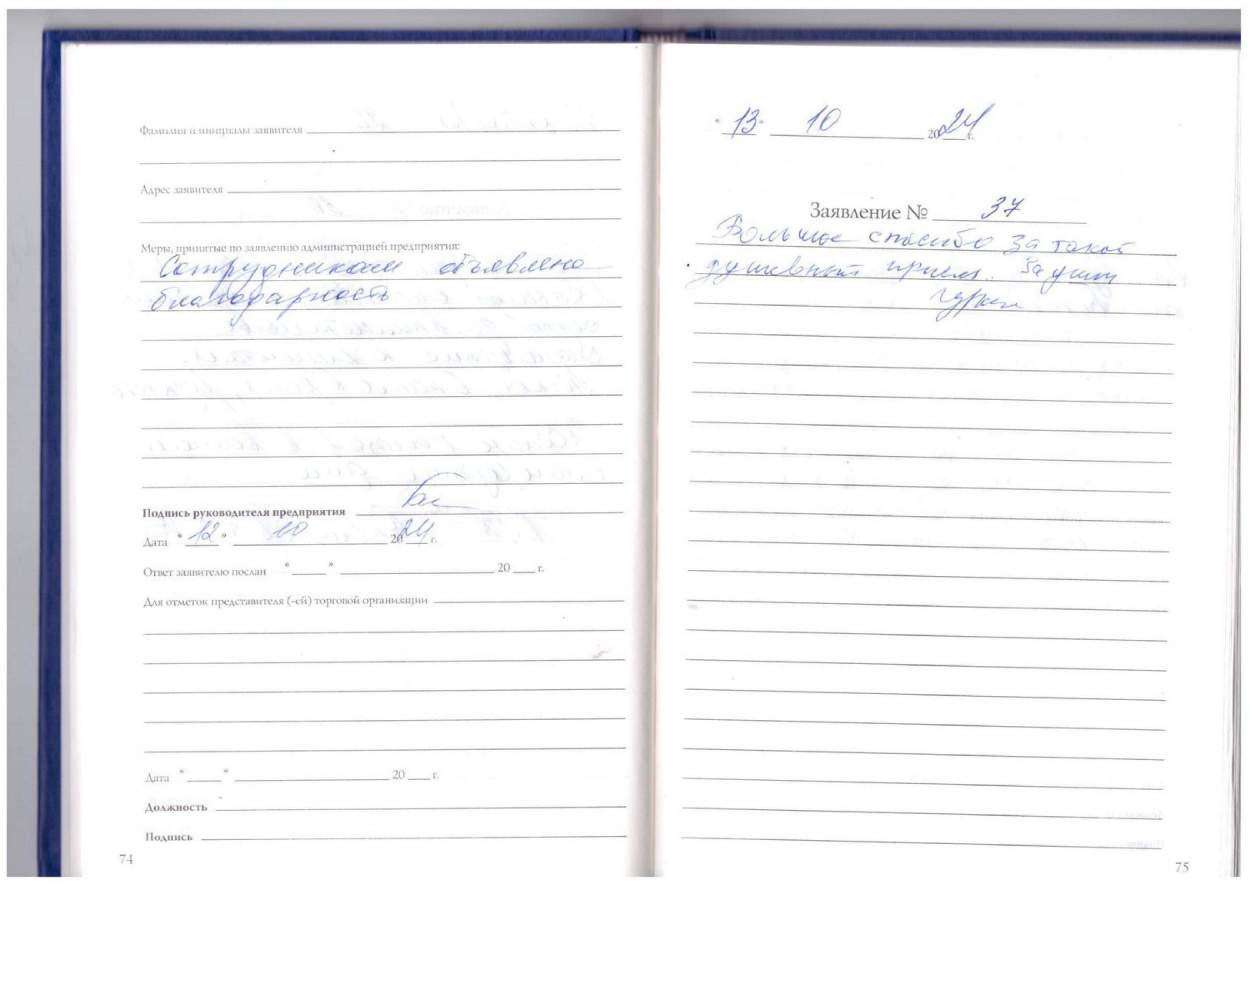 Фамилия и инициалы заявителя
Адрес заявителя
Меры, принятые по заявлению администрацией предприятия:
Сотрудникам объявлена
благодарность
Подпись руководителя предприятия
Дата "12" 10 2024 г.
Ответ заявителю послан " " 20 г.
Для отметок представителя (-ей) торговой организации
Дата " " 20 г.
Должность
Подпись
74
"13" 10 2024 г.
Заявление № 37
Большое спасибо за такой
душевный прием.
75